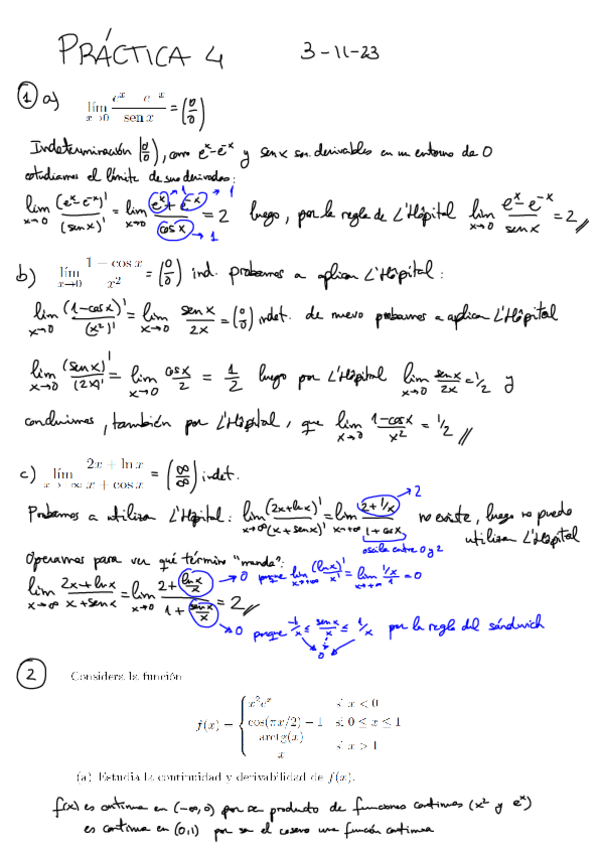 PRÁCTICA 4 3-11-23
1 a) lím x→0 e^x − e^−x / sen x = (0/0)
Indeterminación (0/0), como e^x-e^-x y sen x son derivables en un entorno de 0
estudiamos el límite de sus derivadas:
lim x→0 (e^x-e^-x)'/(sen x)' = lim x→0 e^x+e^-x/cos x = 2 luego, por la regla de L'Hôpital lim x→0 e^x-e^-x/sen x = 2 //
→1 →1 →1
b) lím x→0 1 − cos x / x² = (0/0) ind. probamos a aplicar L'Hôpital:
lim x→0 (1-cos x)'/(x²)' = lim x→0 sen x/2x = (0/0) indet. de nuevo probamos a aplicar L'Hôpital
lim x→0 (sen x)'/(2x)' = lim x→0 cos x/2 = 1/2 luego por L'Hôpital lim x→0 sen x/2x = 1/2 y
concluimos, también por L'Hôpital, que lim x→0 1-cos x/x² = 1/2 //
c) lím x→∞ 2x + ln x / x + cos x = (∞/∞) indet.
Probamos a utilizar L'Hôpital: lim x→∞ (2x+ln x)'/(x+sen x)' = lim x→∞ 2+1/x / 1+cos x no existe, luego no puedo
→2
oscila entre 0 y 2
utilizar L'Hôpital
Operamos para ver qué término "manda":
lim x→∞ 2x+ln x / x+sen x = lim x→0 2+ ln x/x / 1+ sen x/x = 2 //
→0 porque lim x→+∞ (ln x)'/x' = lim x→+∞ 1/x / 1 = 0
→0 porque -1/x ≤ sen x/x ≤ 1/x por la regla del sándwich
0
2 Considera la función
f(x) = { x²e^x si x < 0
cos(πx/2) − 1 si 0 ≤ x ≤ 1
arctg(x) / x si x > 1
(a) Estudia la continuidad y derivabilidad de f(x).
f(x) es continua en (-∞,0) por ser producto de funciones continuas (x² y e^x)
es continua en (0,1) por ser el coseno una función continua